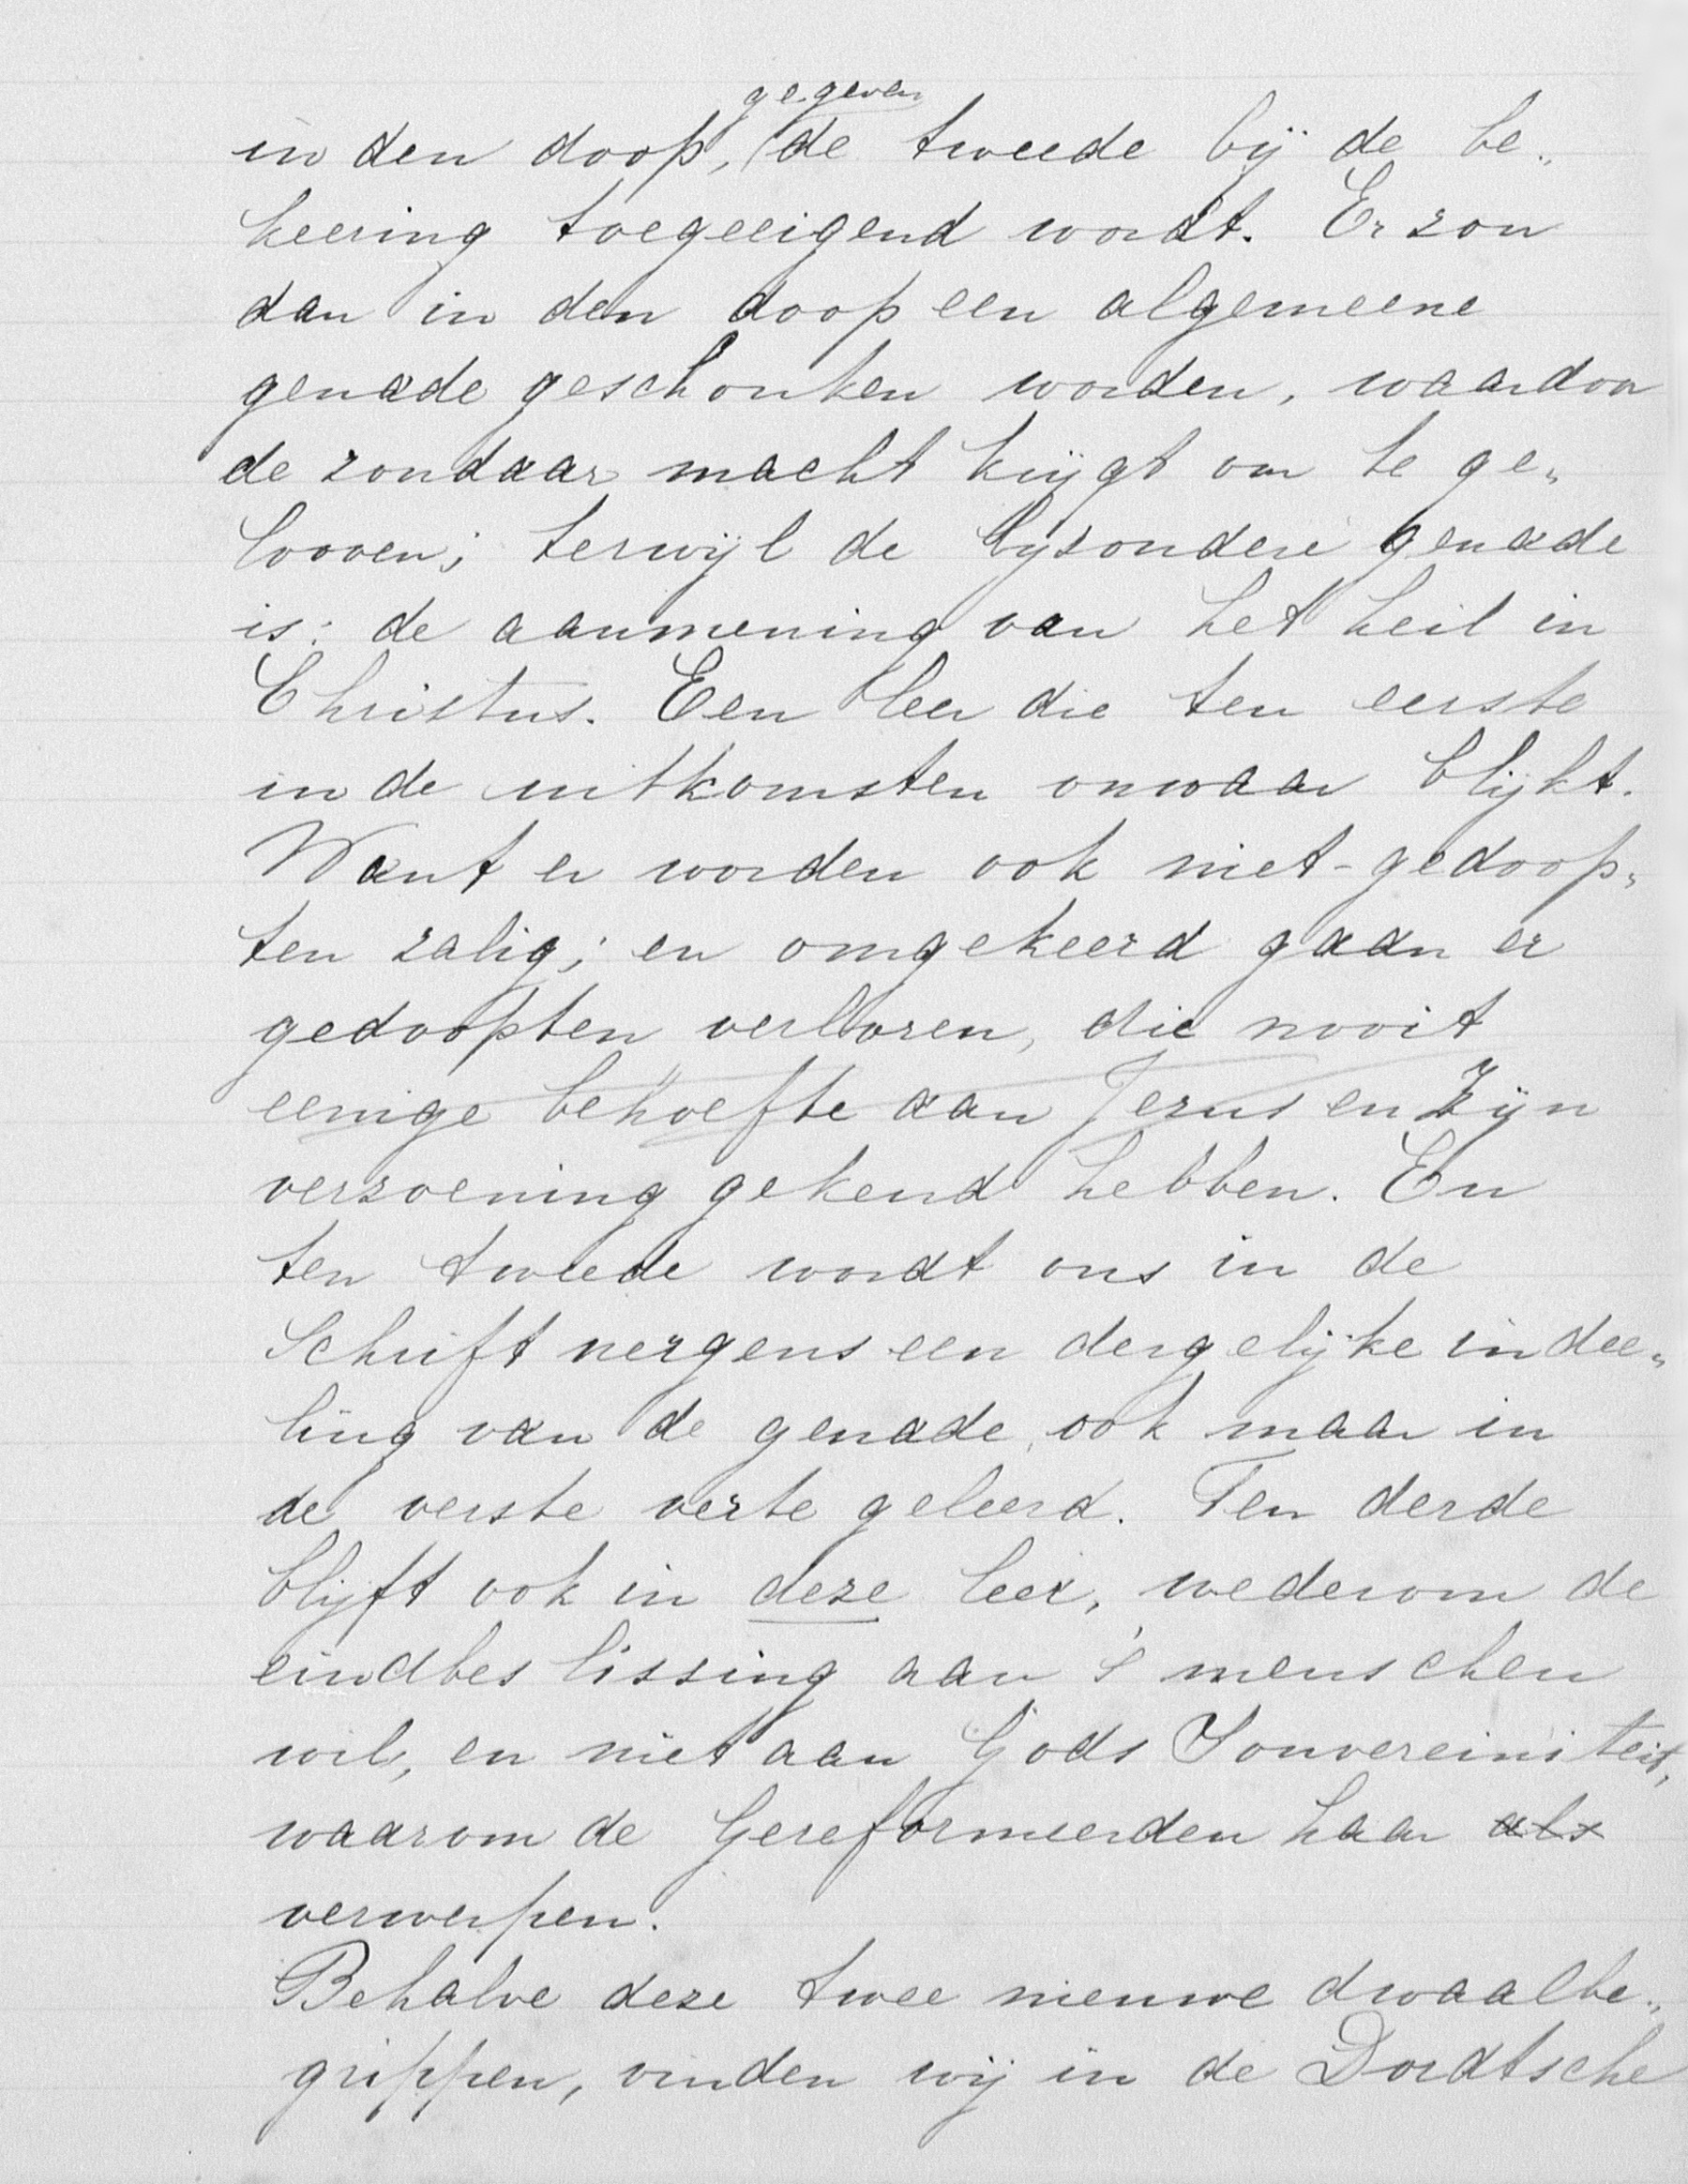 gegeven
in den doop, de tweede bij de be„
keering toegeeigend wordt. Er zou
dan in den doop een algemeene
genade geschonken worden, waardoor
de zondaar macht krijgt om te ge„
looven; terwijl de bijzondere genade
is: de aanneming van het heil in
Christus. Een leer die ten eerste
in de uitkomsten onwaar blijkt.
Want er worden ook niet-gedoop„
ten zalig; en omgekeerd gaan er
gedoopten verloren, die nooit
eenige behoefte aan Jezus en Zijn
verzoening gekend hebben. En
ten tweede wordt ons in de
Schrift nergens een dergelijke indee„
ling van de genade, ook maar in
de verste verte geleerd. Ten derde
blijft ook in deze leer, wederom de
eindbeslissing aan 's menschen
wil, en niet aan Gods Souvereiniteit,
waarom de Gereformeerden haar als
verwerpen.
Behalve deze twee nieuwe dwaalbe„
grippen, vinden wij in de Dordtsche